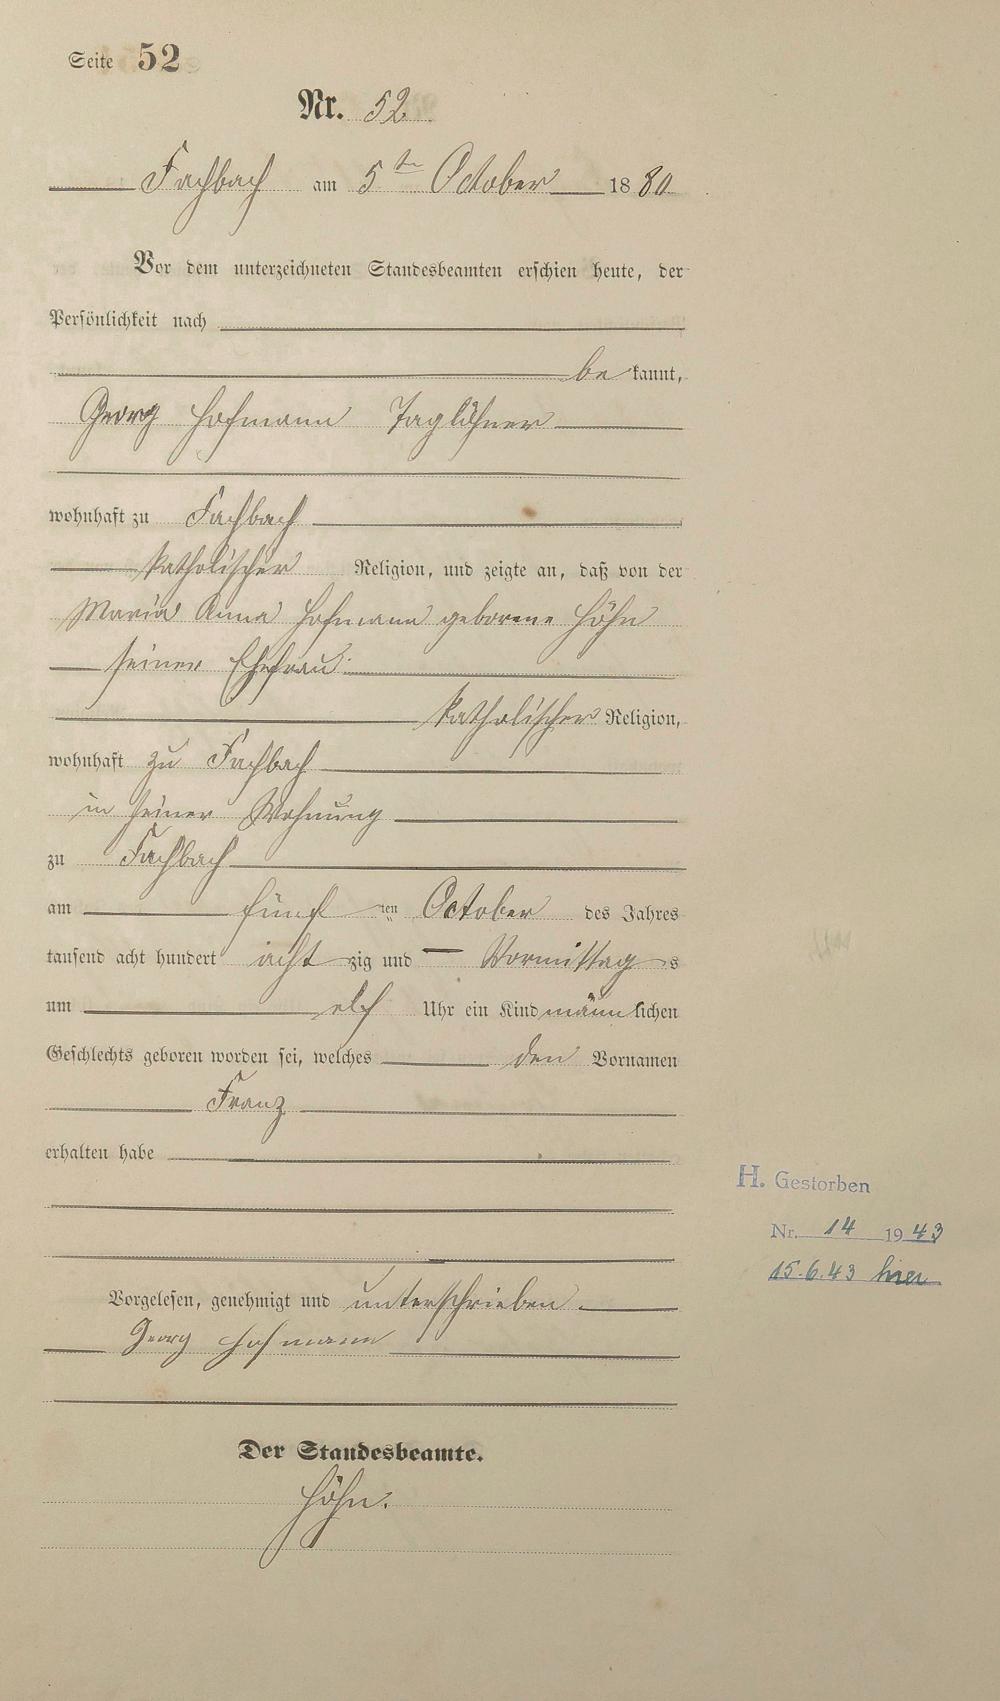 Seite 52
Nr. 52.
Fachbach am 5ten October 1880
Vor dem unterzeichneten Standesbeamten erschien heute, der
Persönlichkeit nach
bekannt,
Georg Hofmann Taglöhner
wohnhaft zu Fachbach
katholischer Religion, und zeigte an, daß von der
Maria Anna Hofmann geborene Höhn
seiner Ehefrau
katholischer Religion,
wohnhaft zu Fachbach
in seiner Wohnung
zu Fachbach
am fünf ten October des Jahres
tausend acht hundert acht zig und — Vormittag s
um elf Uhr ein Kind männlichen
Geschlechts geboren worden sei, welches den Vornamen
Franz
erhalten habe
H. Gestorben
Nr. 14 1943
15.6.43 hier
Vorgelesen, genehmigt und unterschrieben.
Georg Hofmann
Der Standesbeamte.
Höhn.